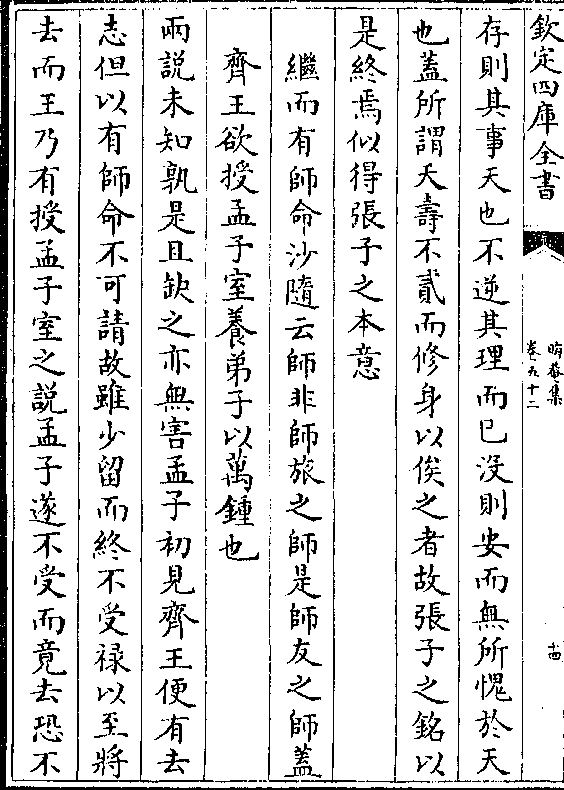 欽定四庫全書
晦菴集
卷五十二
十四
存則其事天也不逆其理而已沒則安而無所愧於天
也蓋所謂夭壽不貳而修身以俟之者故張子之銘以
是終焉似得張子之本意
繼而有師命沙隨云師非師旅之師是師友之師蓋
齊王欲授孟子室養弟子以萬鍾也
兩說未知孰是且缺之亦無害孟子初見齊王便有去
志但以有師命不可請故雖少留而終不受祿以至將
去而王乃有授孟子室之說孟子遂不受而竟去恐不